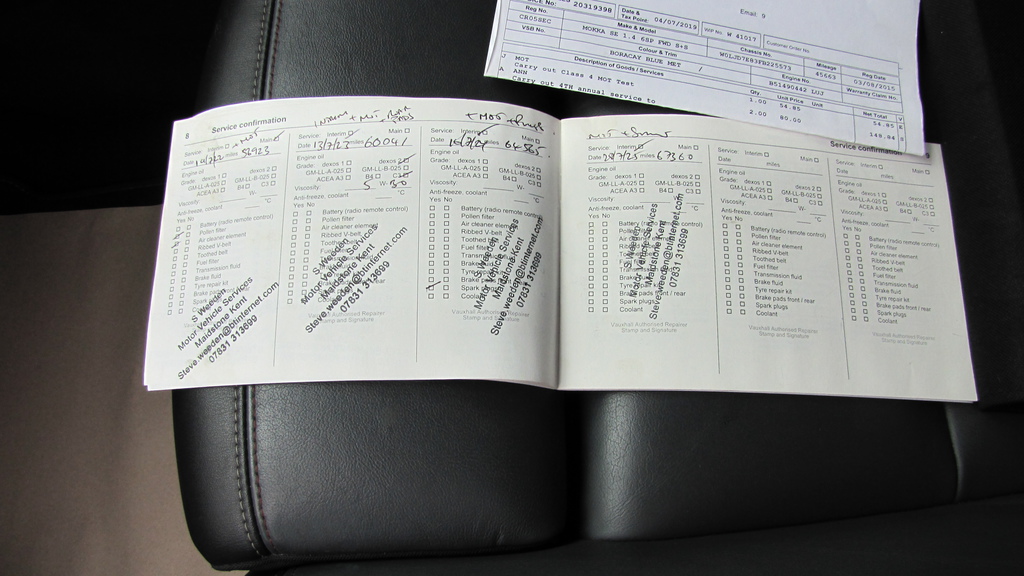 ICE No: 20319398
Date & Tax Point: 04/07/2019
Email: 9
VRP No. W 41017
Customer Order No
Reg No
CR058EC
Make & Model
MOKKA SE 1.4 6SP FWD S+S
Chassis No.
W0LJD7E83FB225573
Mileage
45663
Reg Date
03/08/2015
VSB No.
Colour & Trim
BORACAY BLUE MET /
Engine No.
B51490442 LUJ
Warranty Claim No.
Description of Goods / Services
Qty
Unit Price
Unit
Net Total
V
J MOT
Carry out Class 4 MOT Test
1.00
54.85
54.85
A ANN
Carry out 4TH annual service to
2.00
80.00
148.84
8 Service confirmation
+ MOT
Service: Interim Main
Date miles 56923
Engine oil
Grade: dexos 1 dexos 2
GM-LL-A-025 GM-LL-B-025
ACEA A3 B4 C3
Viscosity W- °C
Anti-freeze, coolant
Yes No
Battery (radio remote control)
Pollen filter
Air cleaner element
Ribbed V-belt
Toothed belt
Fuel filter
Transmission fluid
Brake fluid
Tyre repair kit
S Weeden
Motor Vehicle Services
Maidstone Kent
Steve.weeden@btinternet.com
07831 313699
+ MOT
Service: Interim Main
Date 13/7/23 miles 60041
Engine oil
Grade: dexos 1 dexos 2
GM-LL-A-025 GM-LL-B-025
ACEA A3 B4 C3
Viscosity 5 W- 30 °C
Anti-freeze, coolant
Yes No
Battery (radio remote control)
Pollen filter
Air cleaner element
Ribbed V-belt
Toothed belt
S Weeden
Motor Vehicle Services
Maidstone Kent
Steve.weeden@btinternet.com
07831 313699
Vauxhall Authorised Repairer
Stamp and Signature
+ MOT
Service: Interim Main
Date miles 64585
Engine oil
Grade: dexos 1 dexos 2
GM-LL-A-025 GM-LL-B-025
ACEA A3 B4 C3
Viscosity W- °C
Anti-freeze, coolant
Yes No
Battery (radio remote control)
Pollen filter
Air cleaner element
Ribbed V-belt
Toothed belt
Fuel filter
Coolant
S Weeden
Motor Vehicle Services
Maidstone Kent
Steve.weeden@btinternet.com
07831 313699
Vauxhall Authorised Repairer
Stamp and Signature
Service confirmation
MOT +
Service: Interim Main
Date miles 67360
Engine oil
Grade: dexos 1 dexos 2
GM-LL-A-025 GM-LL-B-025
ACEA A3 B4 C3
Viscosity W- °C
Anti-freeze, coolant
Yes No
Battery (radio remote control)
Pollen filter
Air cleaner element
Ribbed V-belt
Toothed belt
Fuel filter
Transmission fluid
Brake fluid
Tyre repair kit
Brake pads front / rear
Spark plugs
Coolant
S Weeden
Motor Vehicle Services
Maidstone Kent
Steve.weeden@btinternet.com
07831 313699
Vauxhall Authorised Repairer
Stamp and Signature
Service: Interim Main
Date miles
Engine oil
Grade: dexos 1 dexos 2
GM-LL-A-025 GM-LL-B-025
ACEA A3 B4 C3
Viscosity W- °C
Anti-freeze, coolant
Yes No
Battery (radio remote control)
Pollen filter
Air cleaner element
Ribbed V-belt
Toothed belt
Fuel filter
Transmission fluid
Brake fluid
Tyre repair kit
Brake pads front / rear
Spark plugs
Coolant
Vauxhall Authorised Repairer
Stamp and Signature
Service: Interim Main
Date miles
Engine oil
Grade: dexos 1 dexos 2
GM-LL-A-025 GM-LL-B-025
ACEA A3 B4 C3
Viscosity W- °C
Anti-freeze, coolant
Yes No
Battery (radio remote control)
Pollen filter
Air cleaner element
Ribbed V-belt
Toothed belt
Fuel filter
Transmission fluid
Brake fluid
Tyre repair kit
Brake pads front / rear
Spark plugs
Coolant
Vauxhall Authorised Repairer
Stamp and Signature